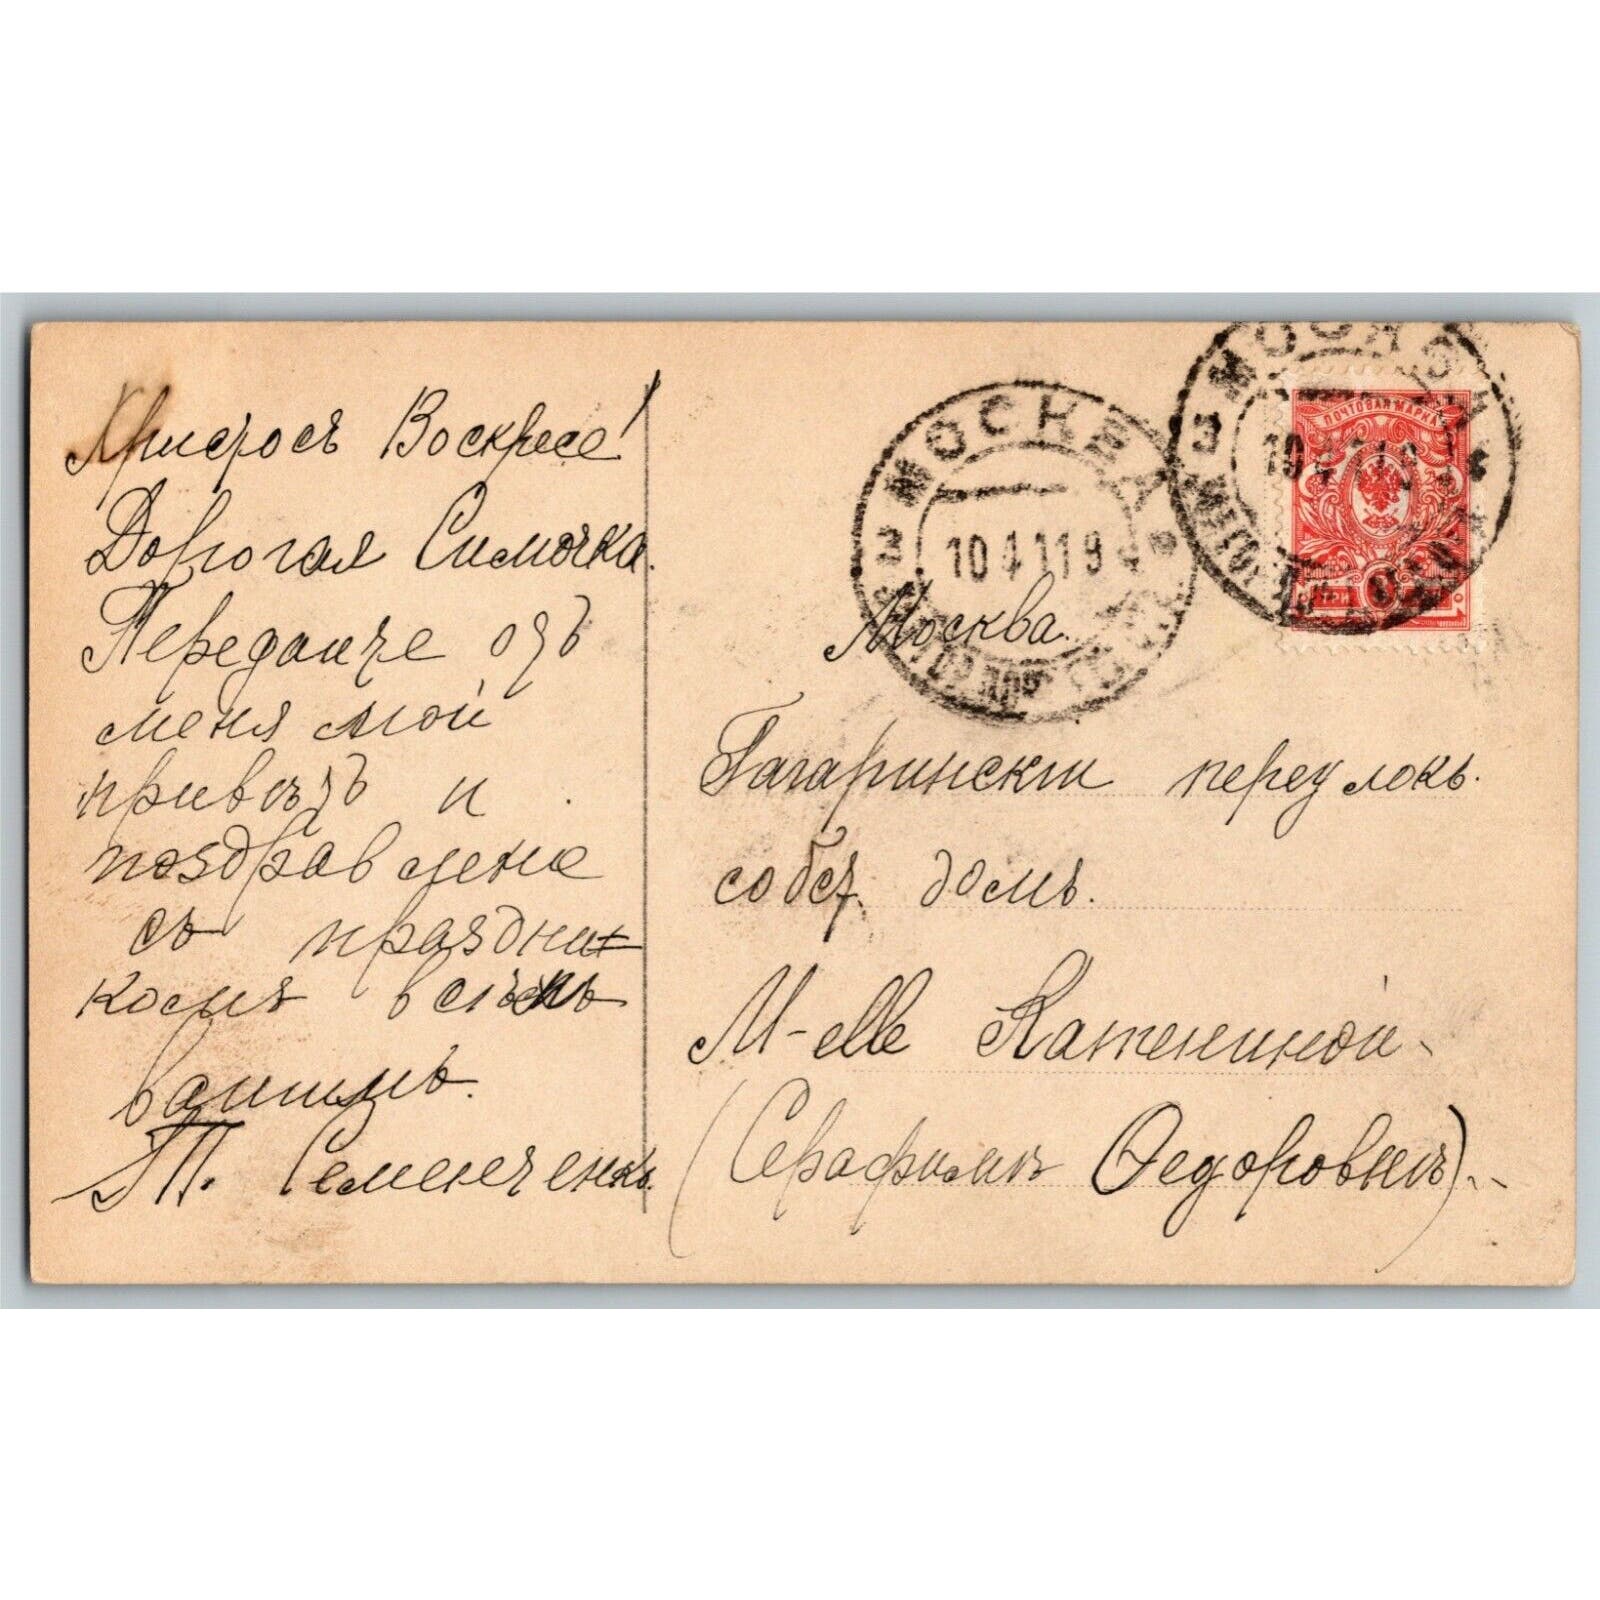 Христосъ Воскресе!
Дорогая Симочка.
Передайте отъ
меня мой
привѣтъ и
поздравленіе
съ праздни-
комъ всѣмъ
вашимъ.
Т. Семенченко.
МОСКВА
10 4 11 9
МОСКВА
ПОЧТОВАЯ МАРКА
Москва.
Гагаринскій переулокъ.
собст. домъ.
М-elle Кажениной
(Серафимѣ Ѳедоровнѣ).